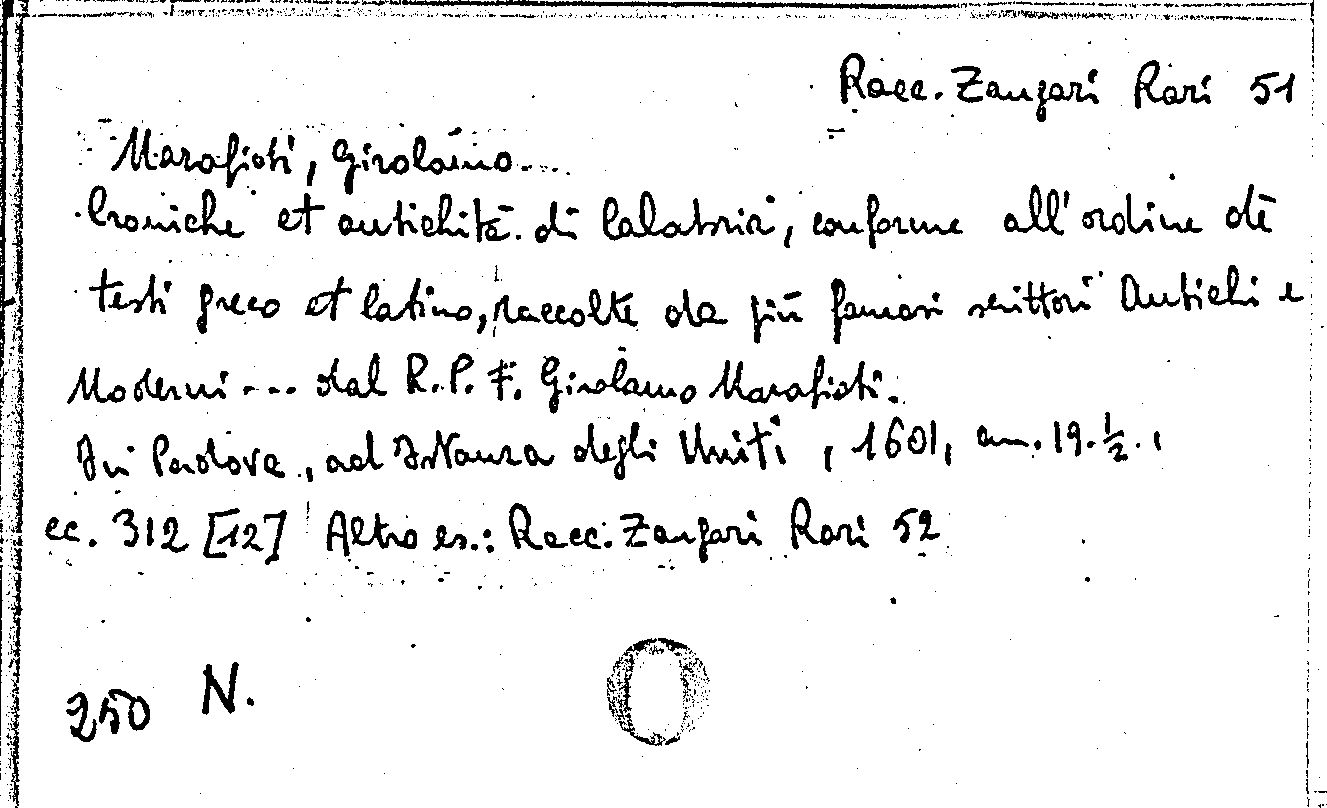 Racc. Zangari Rari 51
Marafioti, Girolamo...
Croniche et antichità di Calabria, conforme all'ordine de
testi greco et latino, raccolte da più famosi scittori Antichi e
Moderni... dal R. P. F. Girolamo Marafioti.
In Padova, ad Istanza degli Uniti, 1601, cm. 19.½.,
cc. 312 [12] Altro es.: Racc. Zangari Rari 52
250 N.